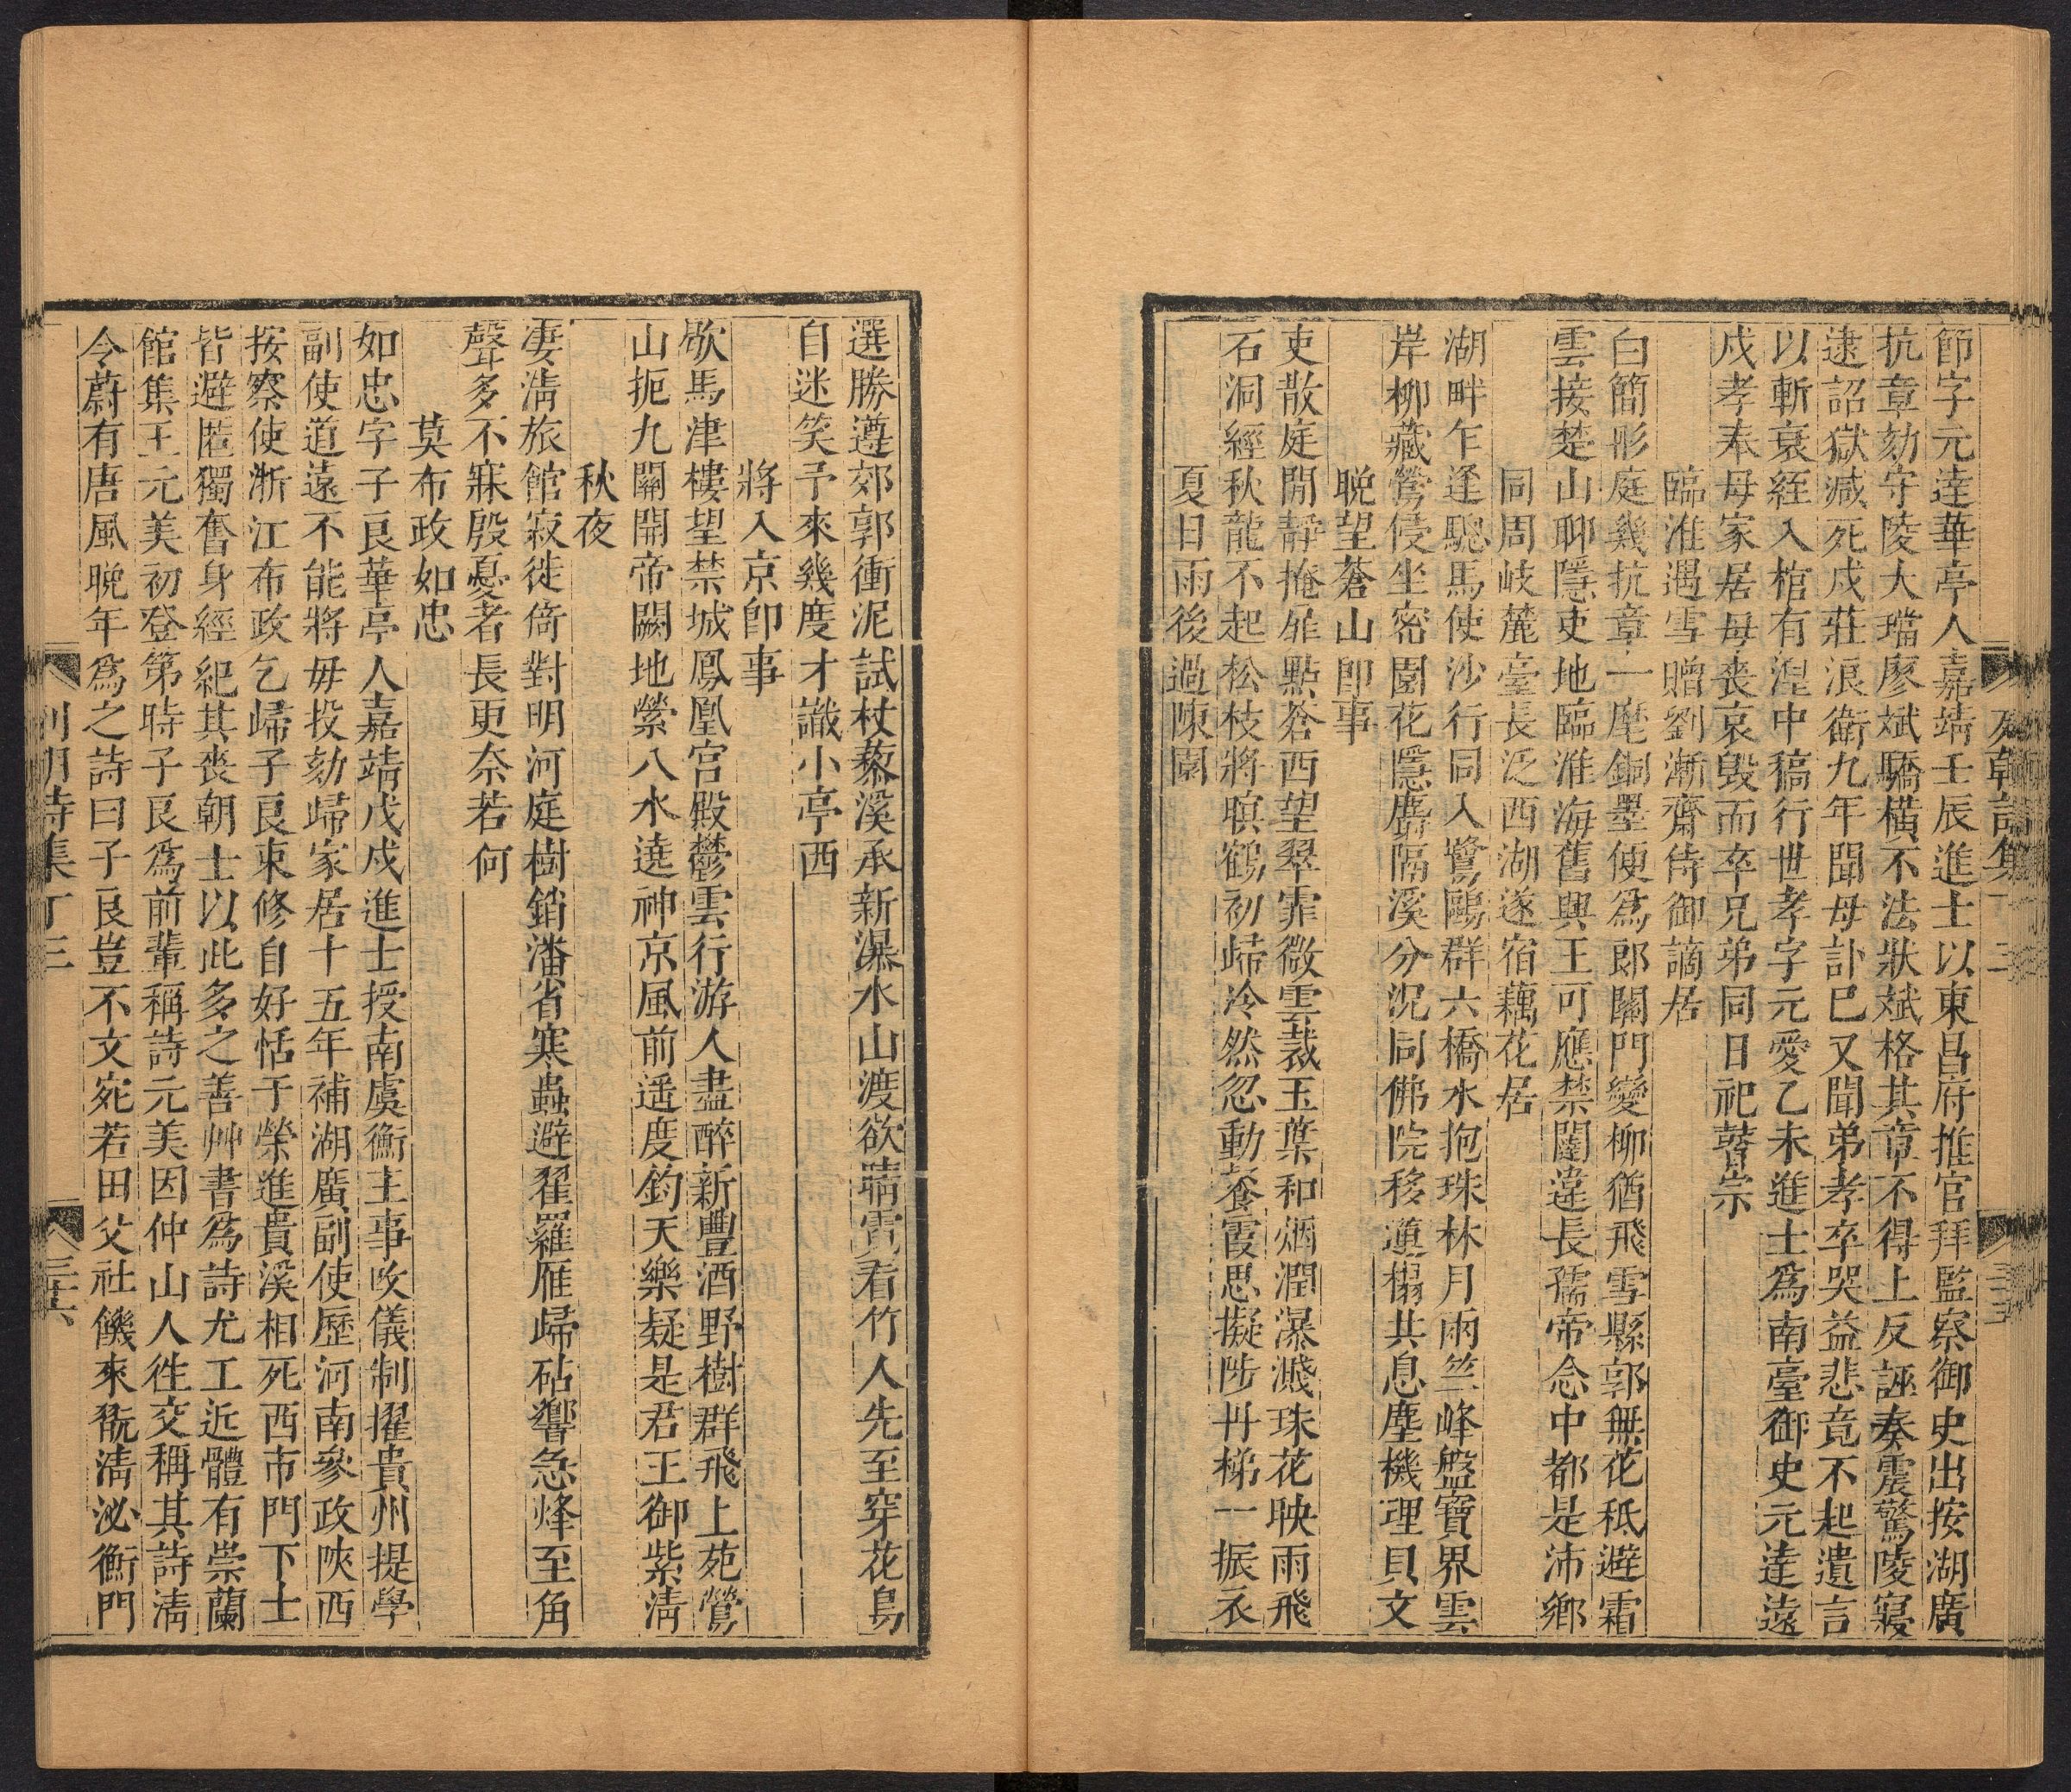 列朝詩集丁三
三五
節字元達華亭人嘉靖壬辰進士以東昌府推官拜監察御史出按湖廣
抗章劾守陵大璫廖斌驕橫不法狀斌格其章不得上反誣奏震驚陵寢
逮詔獄減死戍莊浪衛九年聞母訃已又聞弟孝卒哭益悲竟不起遺言
以斬衰絰入棺有湟中稿行世孝字元愛乙未進士為南臺御史元達遠
戍孝奉母家居母喪哀毀而卒兄弟同日祀瞽宗
臨淮遇雪贈劉漸齋侍御謫居
白簡彤庭幾抗章一麾銅墨便為郎關門變柳猶飛雪縣郭無花秪避霜
雲接楚山聊隱吏地臨淮海舊興王可應禁闥違長孺帝念中都是沛鄉
同周岐麓臺長泛西湖遂宿藕花居
湖畔乍逢驄馬使沙行同入鷺鷗群六橋水抱珠林月兩竺峰盤寶界雲
岸柳藏鶯侵坐密園花隱麝隔溪分況同佛院移蓮榻共息塵機理貝文
晚望蒼山即事
吏散庭閒靜掩扉點蒼西望翠霏微雲裁玉葉和烟潤瀑濺珠花映雨飛
石洞經秋龍不起松枝將暝鶴初歸冷然忽動餐霞思擬陟丹梯一振衣
夏日雨後過陳園
選勝遵郊郭衝泥試杖藜溪承新瀑水山渡欲晴霓看竹人先至穿花鳥
自迷笑予來幾度才識小亭西
將入京即事
歇馬津樓望禁城鳳凰宮殿鬱雲行游人盡醉新豐酒野樹群飛上苑鶯
山扼九關開帝闕地縈八水遶神京風前遥度鈞天樂疑是君王御紫清
秋夜
凄淸旅館寂徙倚對明河庭樹銷潘省寒蟲避翟羅雁歸砧響急烽至角
聲多不寐殷憂者長更奈若何
莫布政如忠
如忠字子良華亭人嘉靖戊戌進士授南虞衡主事改儀制擢貴州提學
副使道遠不能將毋投劾歸家居十五年補湖廣副使歷河南參政陝西
按察使浙江布政乞歸子良束修自好恬于榮進貴溪相死西市門下士
皆避匿獨奮身經紀其喪朝士以此多之善艸書為詩尤工近體有崇蘭
館集王元美初登第時子良為前輩稱詩元美因仲山人徃交稱其詩清
令蔚有唐風晚年為之詩曰子良豈不文宛若田父社饑來翫清泌衡門
列朝詩集丁三
三六